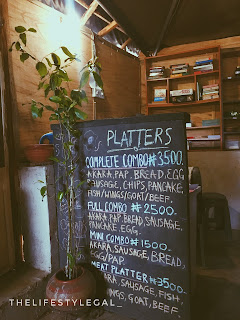 PLATTERS
COMPLETE COMBO #3500.
AKARA, PAP, BREAD, EGG
SAUSAGE, CHIPS, PANCAKE,
FISH/WINGS/GOAT/BEEF.
FULL COMBO # 2500.
AKARA, PAP, BREAD, SAUSAGE,
PANCAKE, EGG.
MINI COMBO #1500.
AKARA, SAUSAGE, BREAD,
EGG/PAP.
MEAT PLATTER #3500
AKARA, SAUSAGE, FISH,
WINGS, GOAT, BEEF.
THELIFESTYLEGAL_